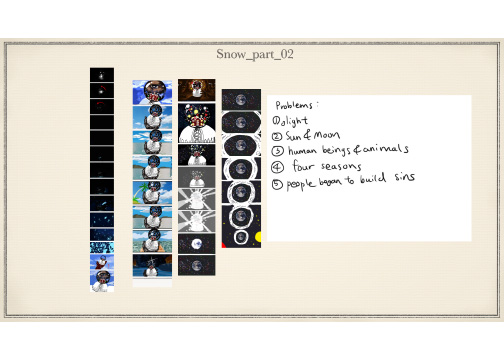 Snow_part_02
Problems :
① light
② Sun & Moon
③ human beings & animals
④ four seasons
⑤ people began to build sins